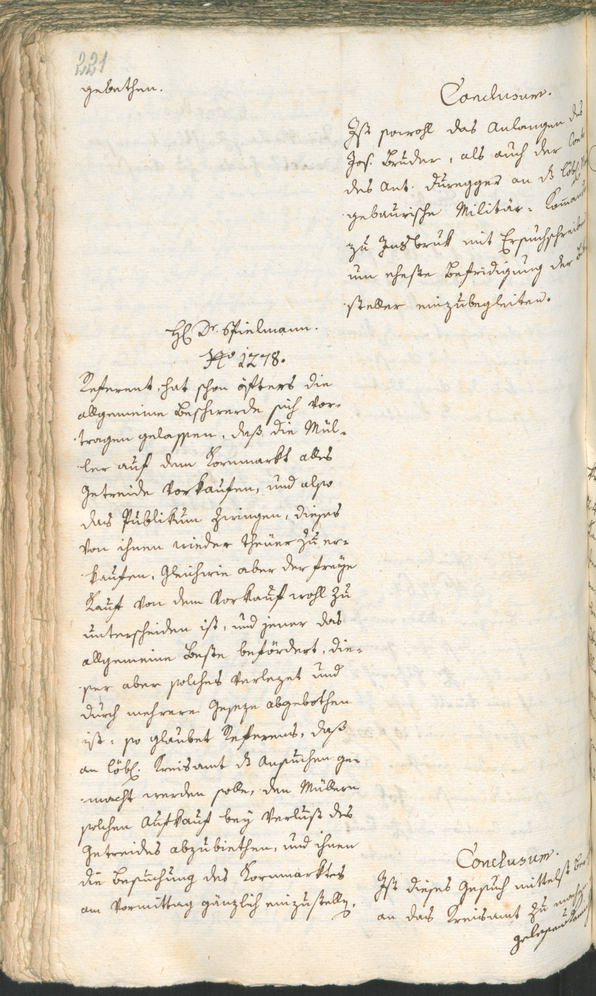 221
gebethen.
Conclusum.
Ist sowohl das Anlangen des
Jos. Bruder, als auch der
des Ant. Duregger an d. löbl.
gebaurische Militär-Komma
zu Insbruk mit Ersuchschreiben
um eheste Befridigung der
steller einzubegleiten.
H. Dr. Spielmann.
No 1278.
Referent hat schon öfters die
allgemeine Beschwerde sich vor-
tragen gelassen, daß die Mül-
ler auf dem Kornmarkt alles
Getreide vorkaufen, und also
das Publikum zwingen, dieses
von ihnen wieder theuer zu er-
kaufen. Gleichwie aber der freye
Kauf von dem Vorkauf wohl zu
unterscheiden ist, und jener das
allgemeine Beste befördert, die-
ser aber solches verlezet und
durch mehrere Geseze abgebothen
ist: so glaubet Referens, daß
an löbl. Kreisamt d. Ansuchen ge-
macht werden solle, den Müllern
solchen Aufkauf bey Verlust des
Getreides abzubiethen, und ihnen
die Besuchung des Kornmarktes
am Vormittag gänzlich einzustellen.
Conclusum.
Ist dieses Gesuch mittelst
an das Kreisamt zu machen